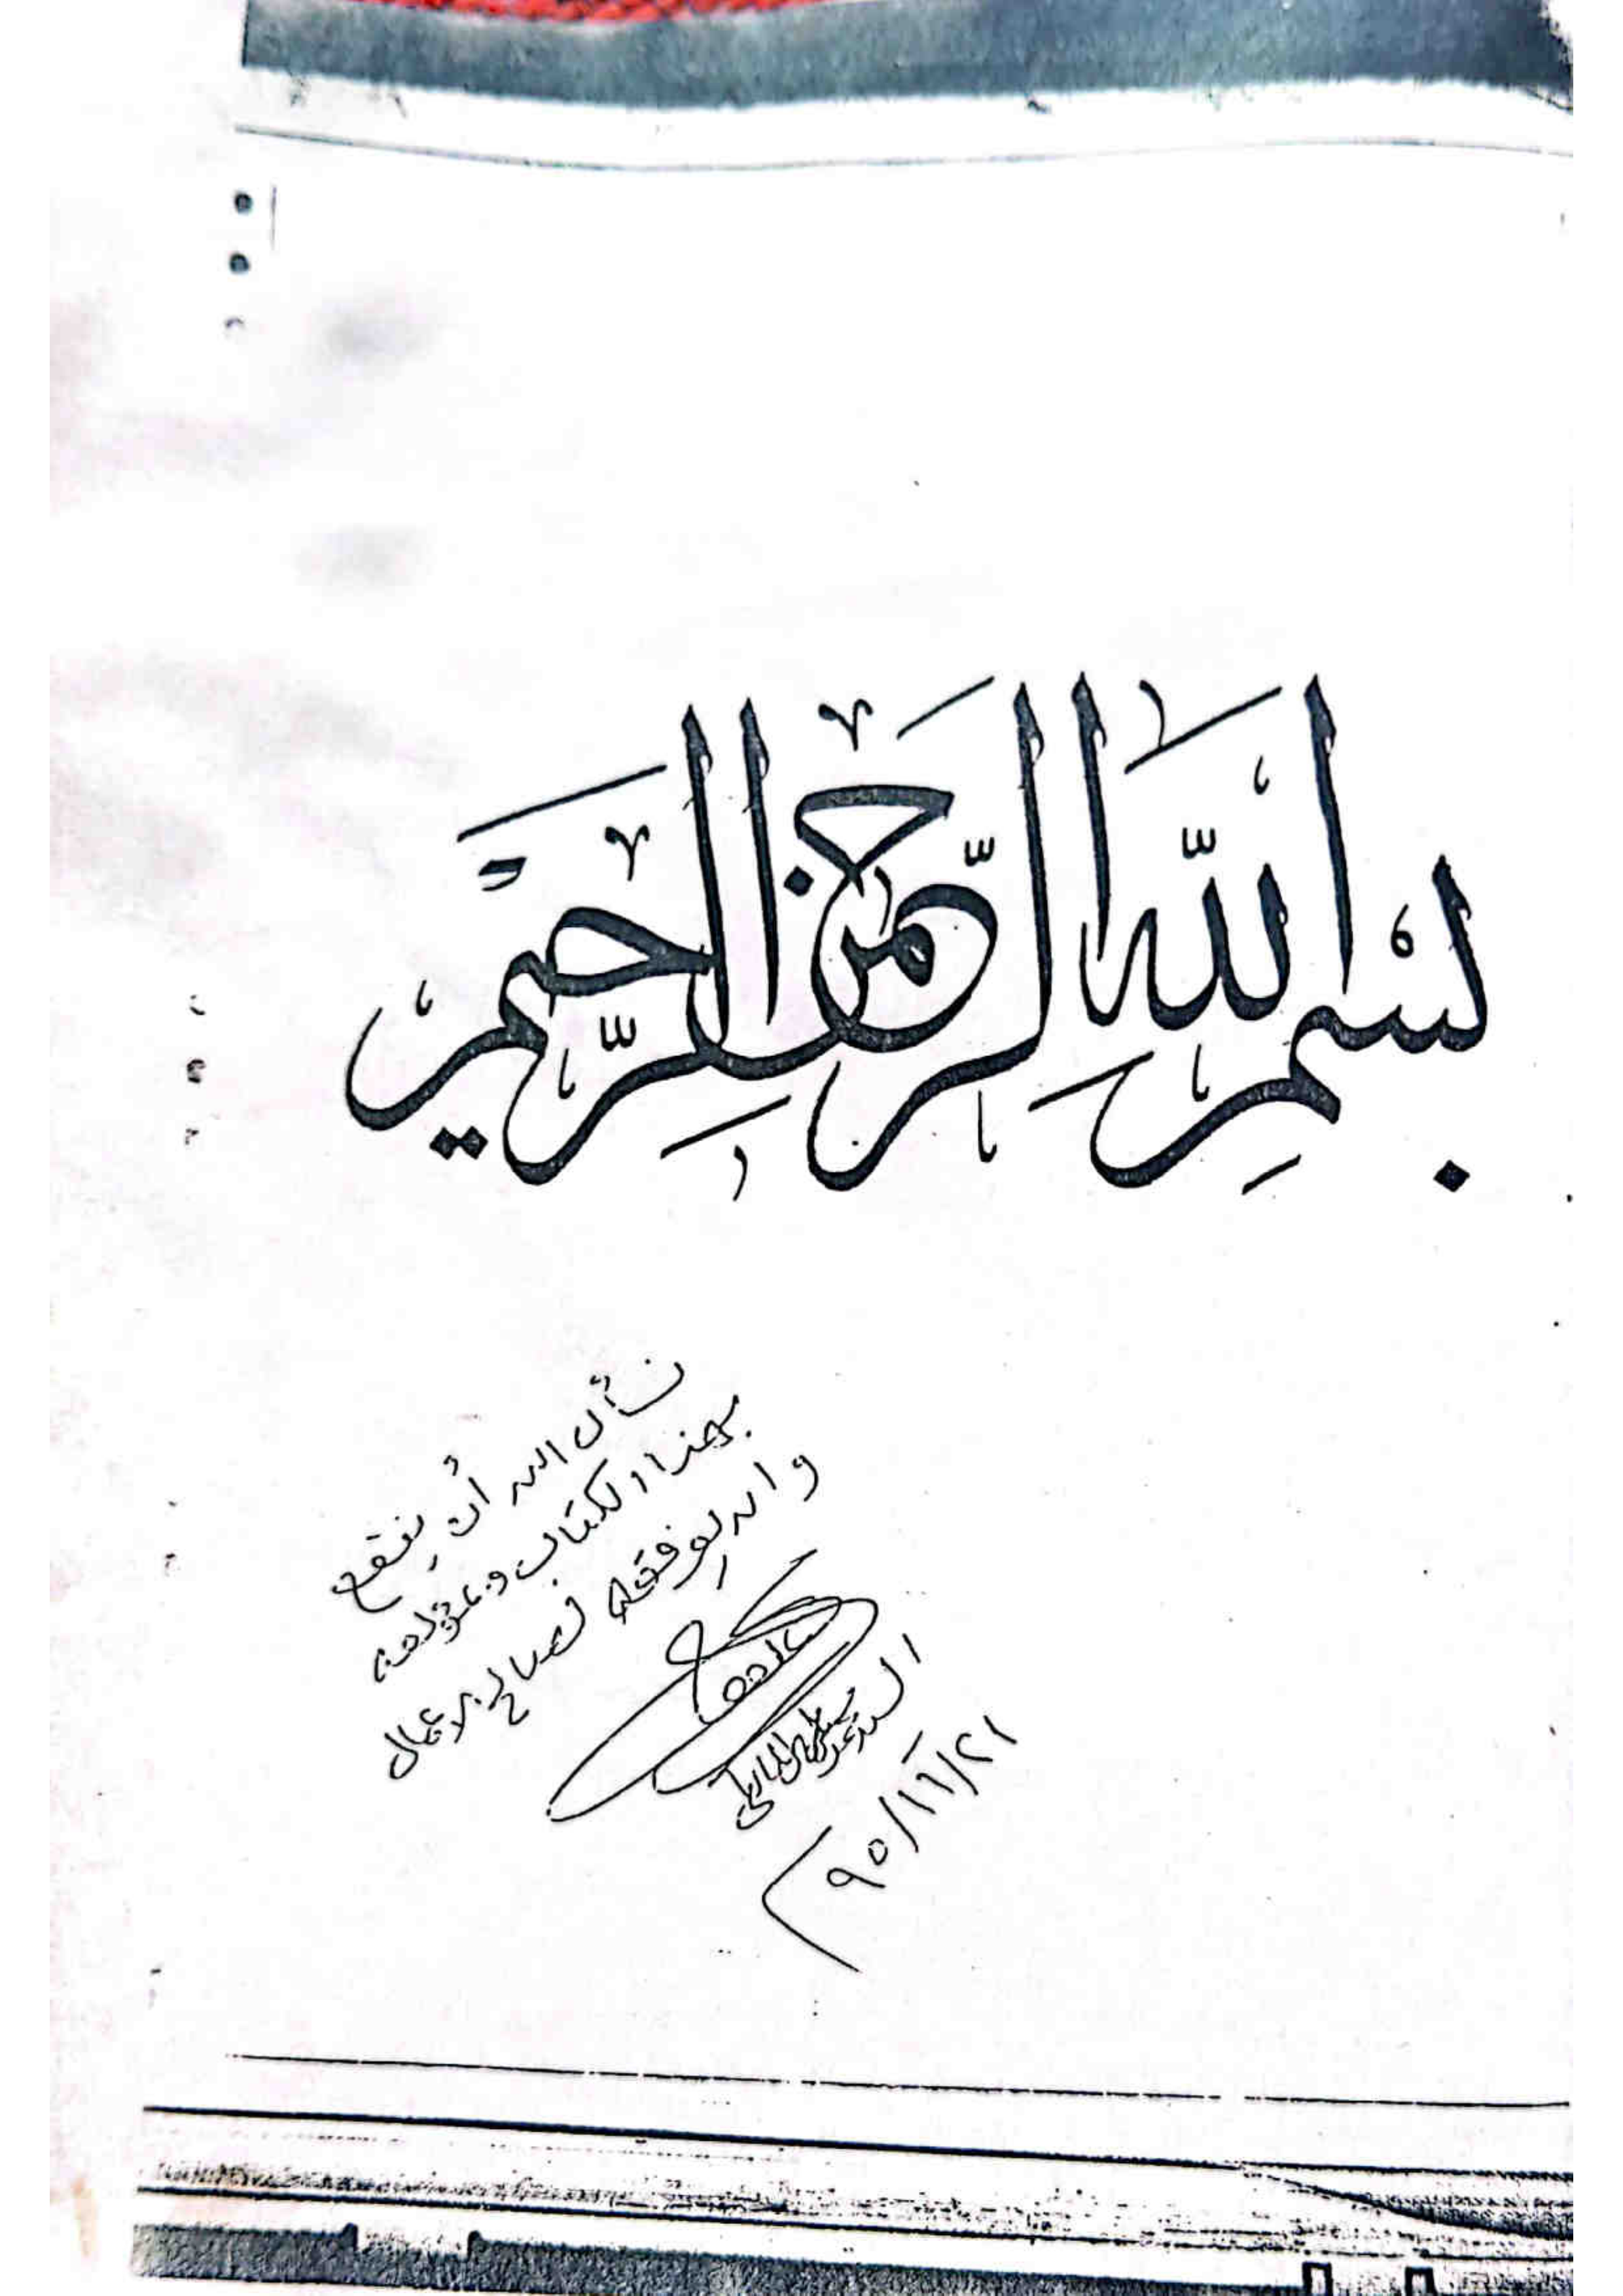 بِسْمِ اللَّهِ الرَّحْمَنِ الرَّحِيمِ
نسأل الله أن ينفع
بهذا الكتاب ومؤلفه
وان يوفقه لصالح الأعمال
السيد